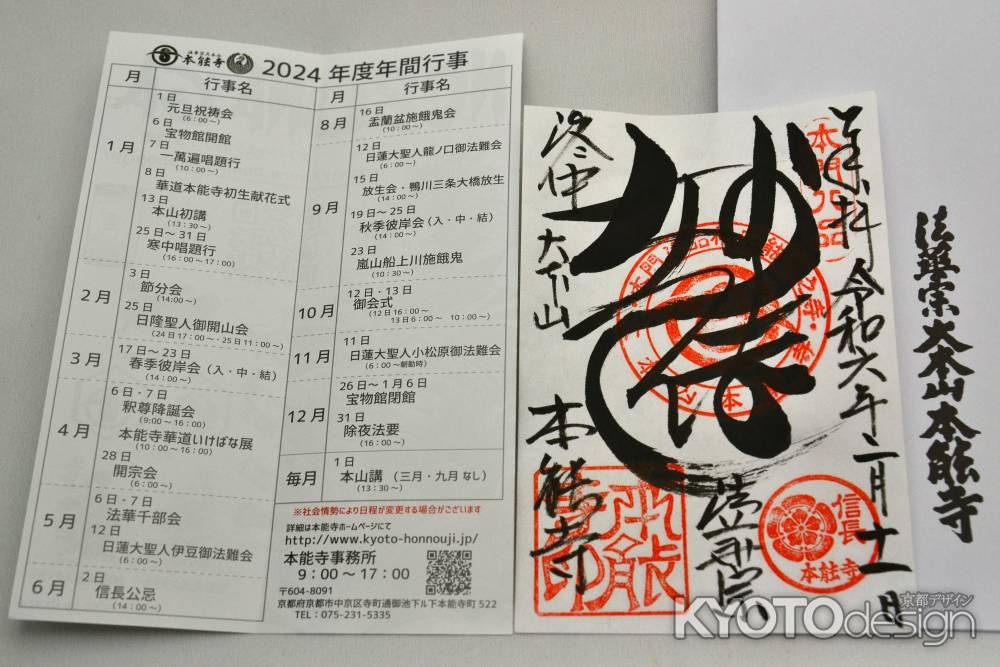 本能寺 2024 年度年間行事
月 行事名
1月
1日
元旦祝祷会
(6:00~)
6日
宝物館開館
7日
一萬遍唱題行
(10:00~)
8日
華道本能寺初生献花式
13日
本山初講
(13:30~)
25日~31日
寒中唱題行
(16:00~17:00)
2月
3日
節分会
(14:00~)
25日
日隆聖人御開山会
(24日17:00~・25日11:00~)
3月
17日~23日
春季彼岸会(入・中・結)
(14:00~)
4月
6日・7日
釈尊降誕会
(9:00~16:00)
本能寺華道いけばな展
(10:00~16:00)
28日
開宗会
(6:00~)
5月
6日・7日
法華千部会
12日
日蓮大聖人伊豆御法難会
(6:00~)
6月
2日
信長公忌
(14:00~)
月 行事名
8月
16日
盂蘭盆施餓鬼会
(10:00~)
9月
12日
日蓮大聖人龍ノ口御法難会
(6:00~)
15日
放生会・鴨川三条大橋放生
(14:00~)
19日~25日
秋季彼岸会(入・中・結)
(14:00~)
23日
嵐山船上川施餓鬼
(10:30~)
10月
12日・13日
御会式
(12日16:00~
13日6:00~ 10:00~)
11月
11日
日蓮大聖人小松原御法難会
(6:00~朝勤時)
12月
26日~1月6日
宝物館閉館
31日
除夜法要
(16:00~)
毎月
1日
本山講(三月・九月なし)
(13:30~)
※社会情勢により日程が変更する場合がございます
詳細は本能寺ホームページにて
http://www.kyoto-honnouji.jp/
本能寺事務所
9:00~17:00
〒604-8091
京都府京都市中京区寺町通御池下ル下本能寺町 522
TEL:075-231-5335
奉拝 令和六年二月十一日
妙法
法華宗
洛中 大本山 本能寺
信長
本能寺
法華宗大本山本能寺
京都デザイン
KYOTOdesign